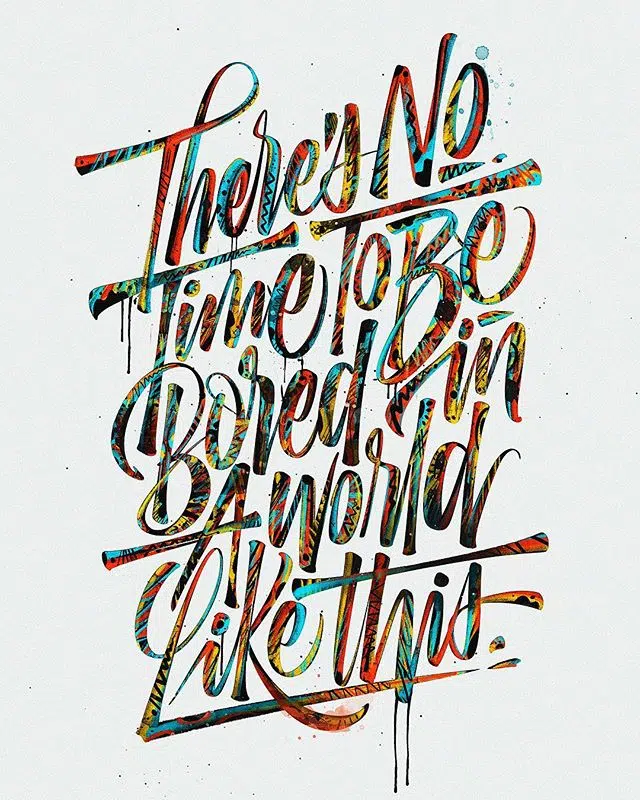 There's No
Time To Be
Bored in
A World
Like this.